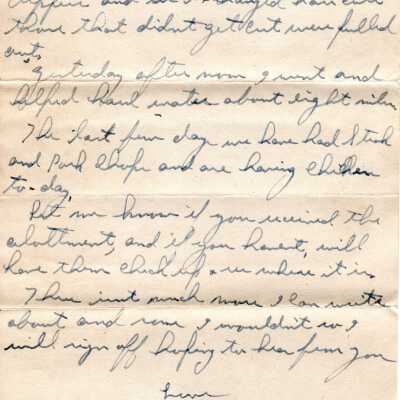 clippers and we exchanged hair cuts
those that didnt get cut were pulled
out.
Yesterday after noon I went and
helped haul water about eight miles
The last few day we have had Steak
and Pork Chops and are having Chicken
to-day.
Let me know if you received the
alottment, and if you havent, will
have them check up & see where it is
There isnt much more I can write
about and some I wouldn't so I
will sign off hoping to hear from you
Love